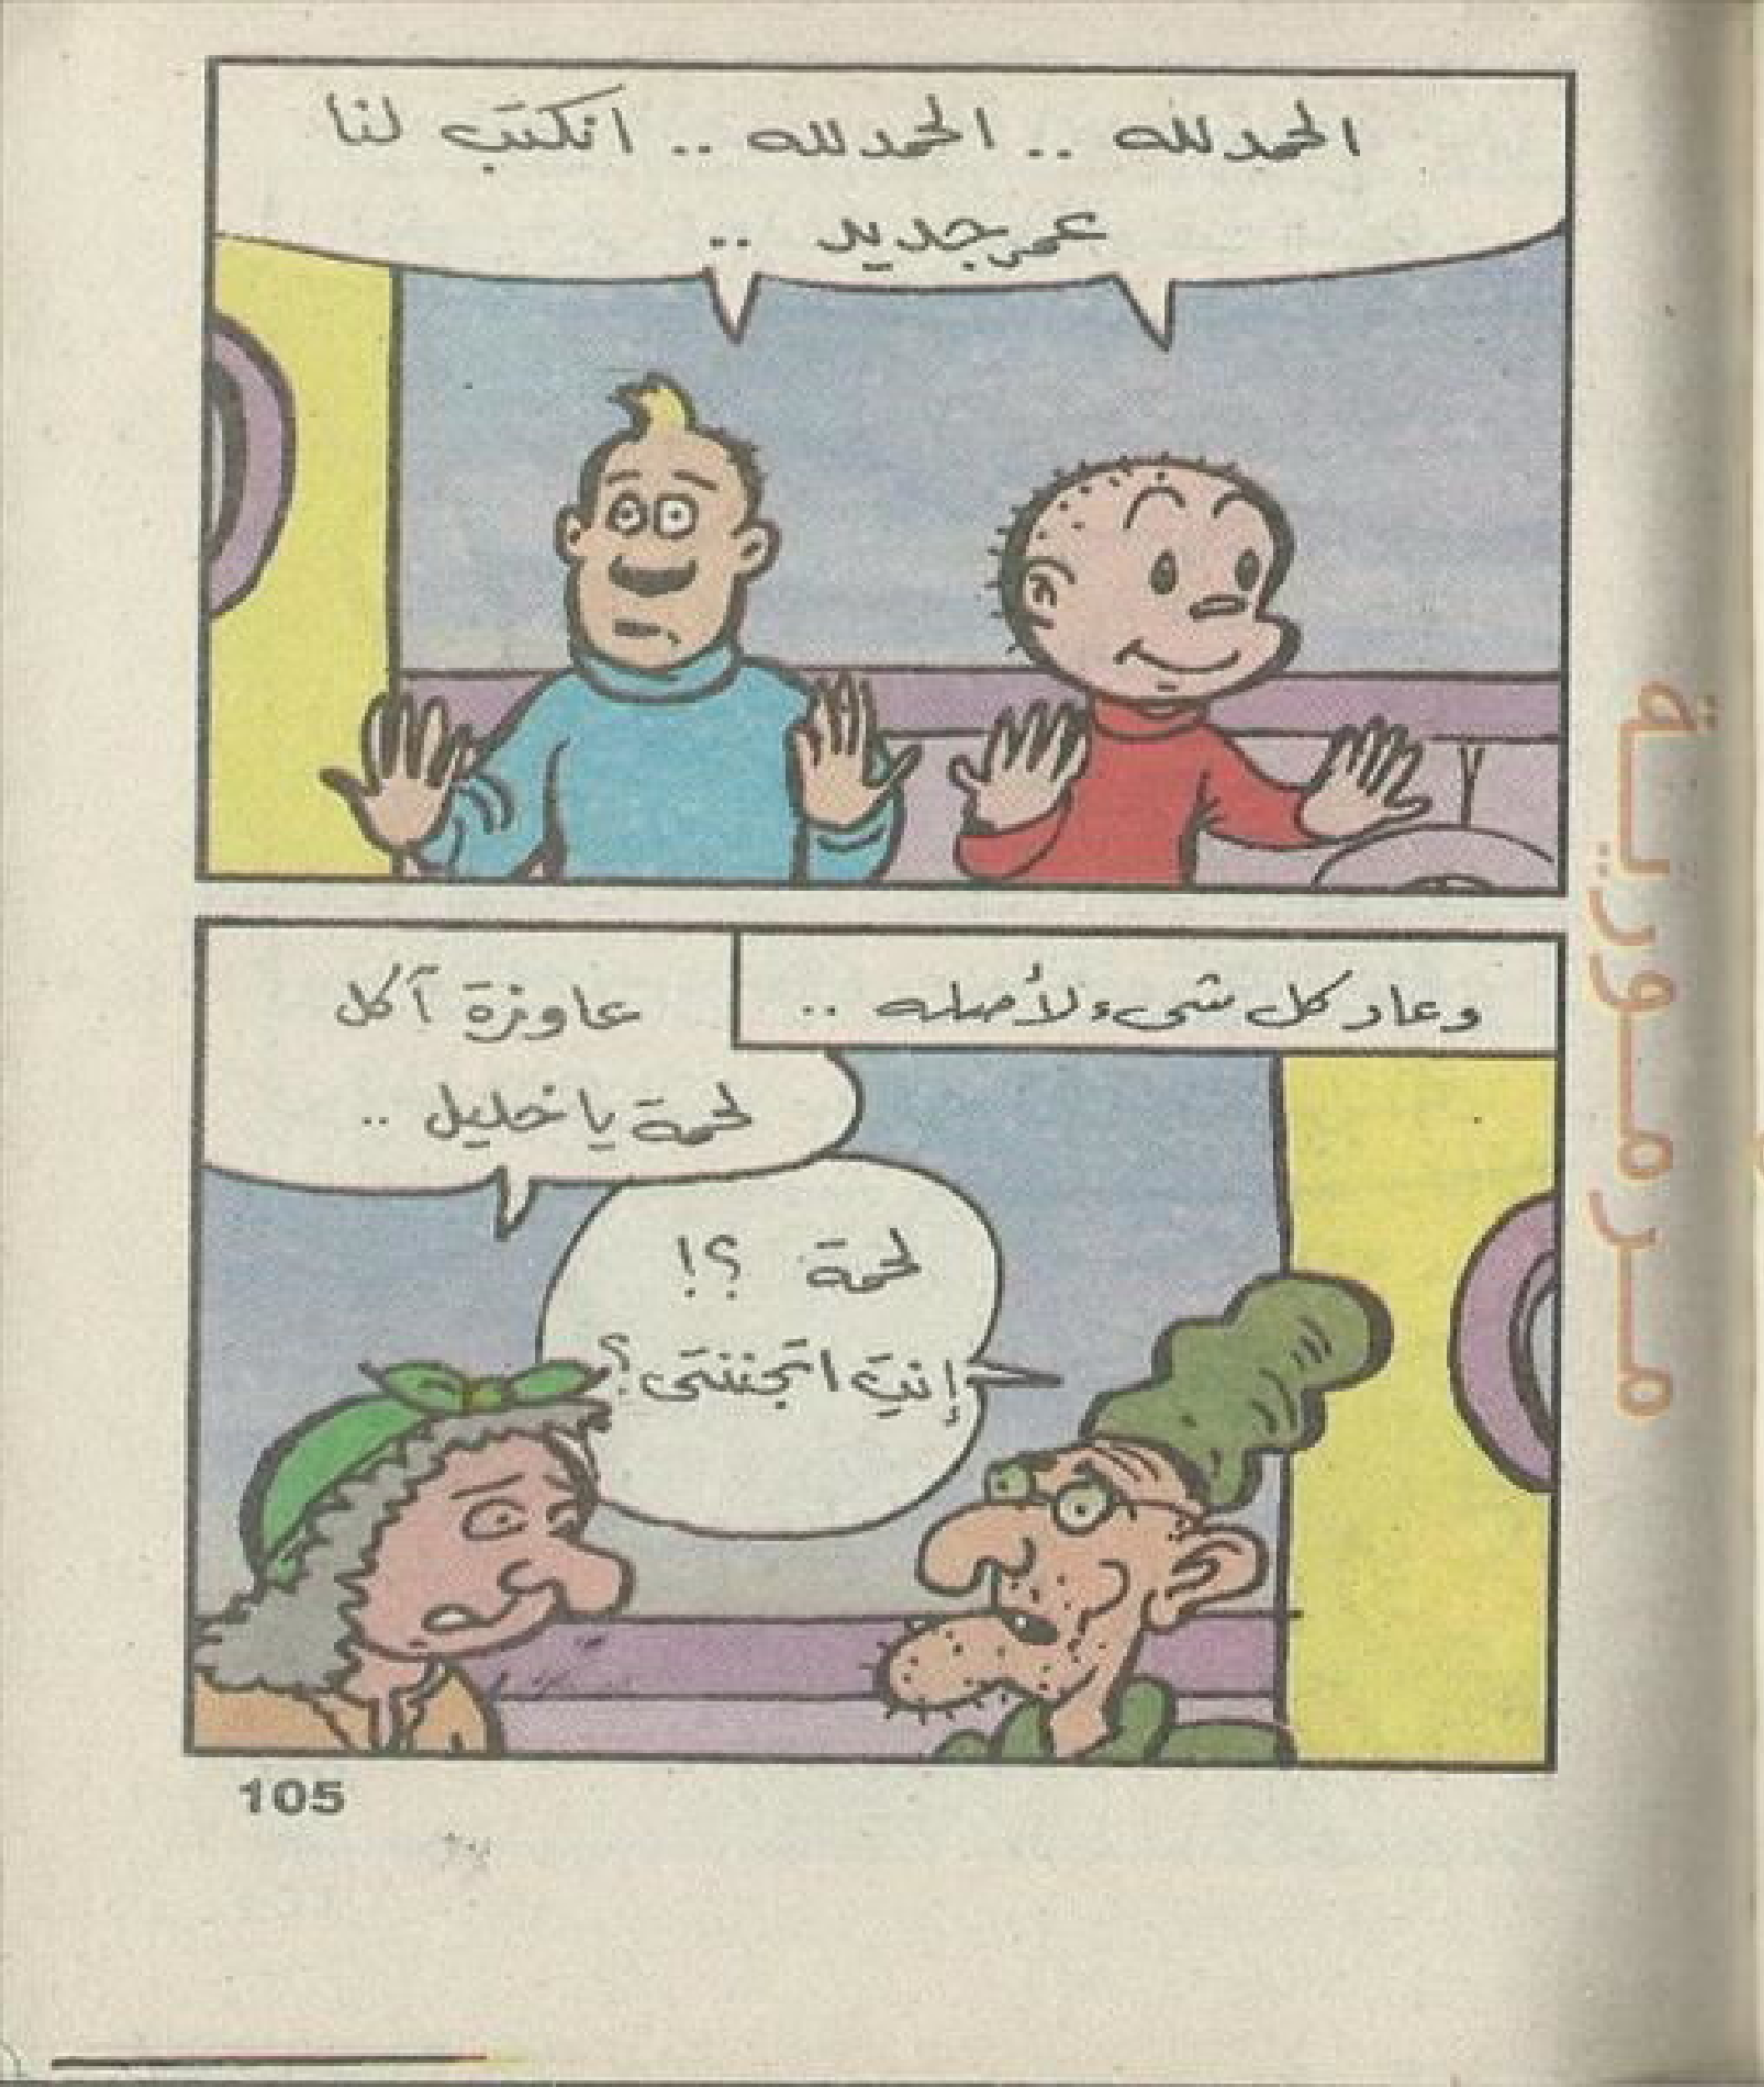 الحمد لله .. الحمد لله .. انكتب لنا
عمر جديد ..
وعاد كل شىء لأصله ..
عاوزة آكل
لحمة يا خليل ..
لحمة ؟!
إنتِ اتجننتى؟
مرمورية
105